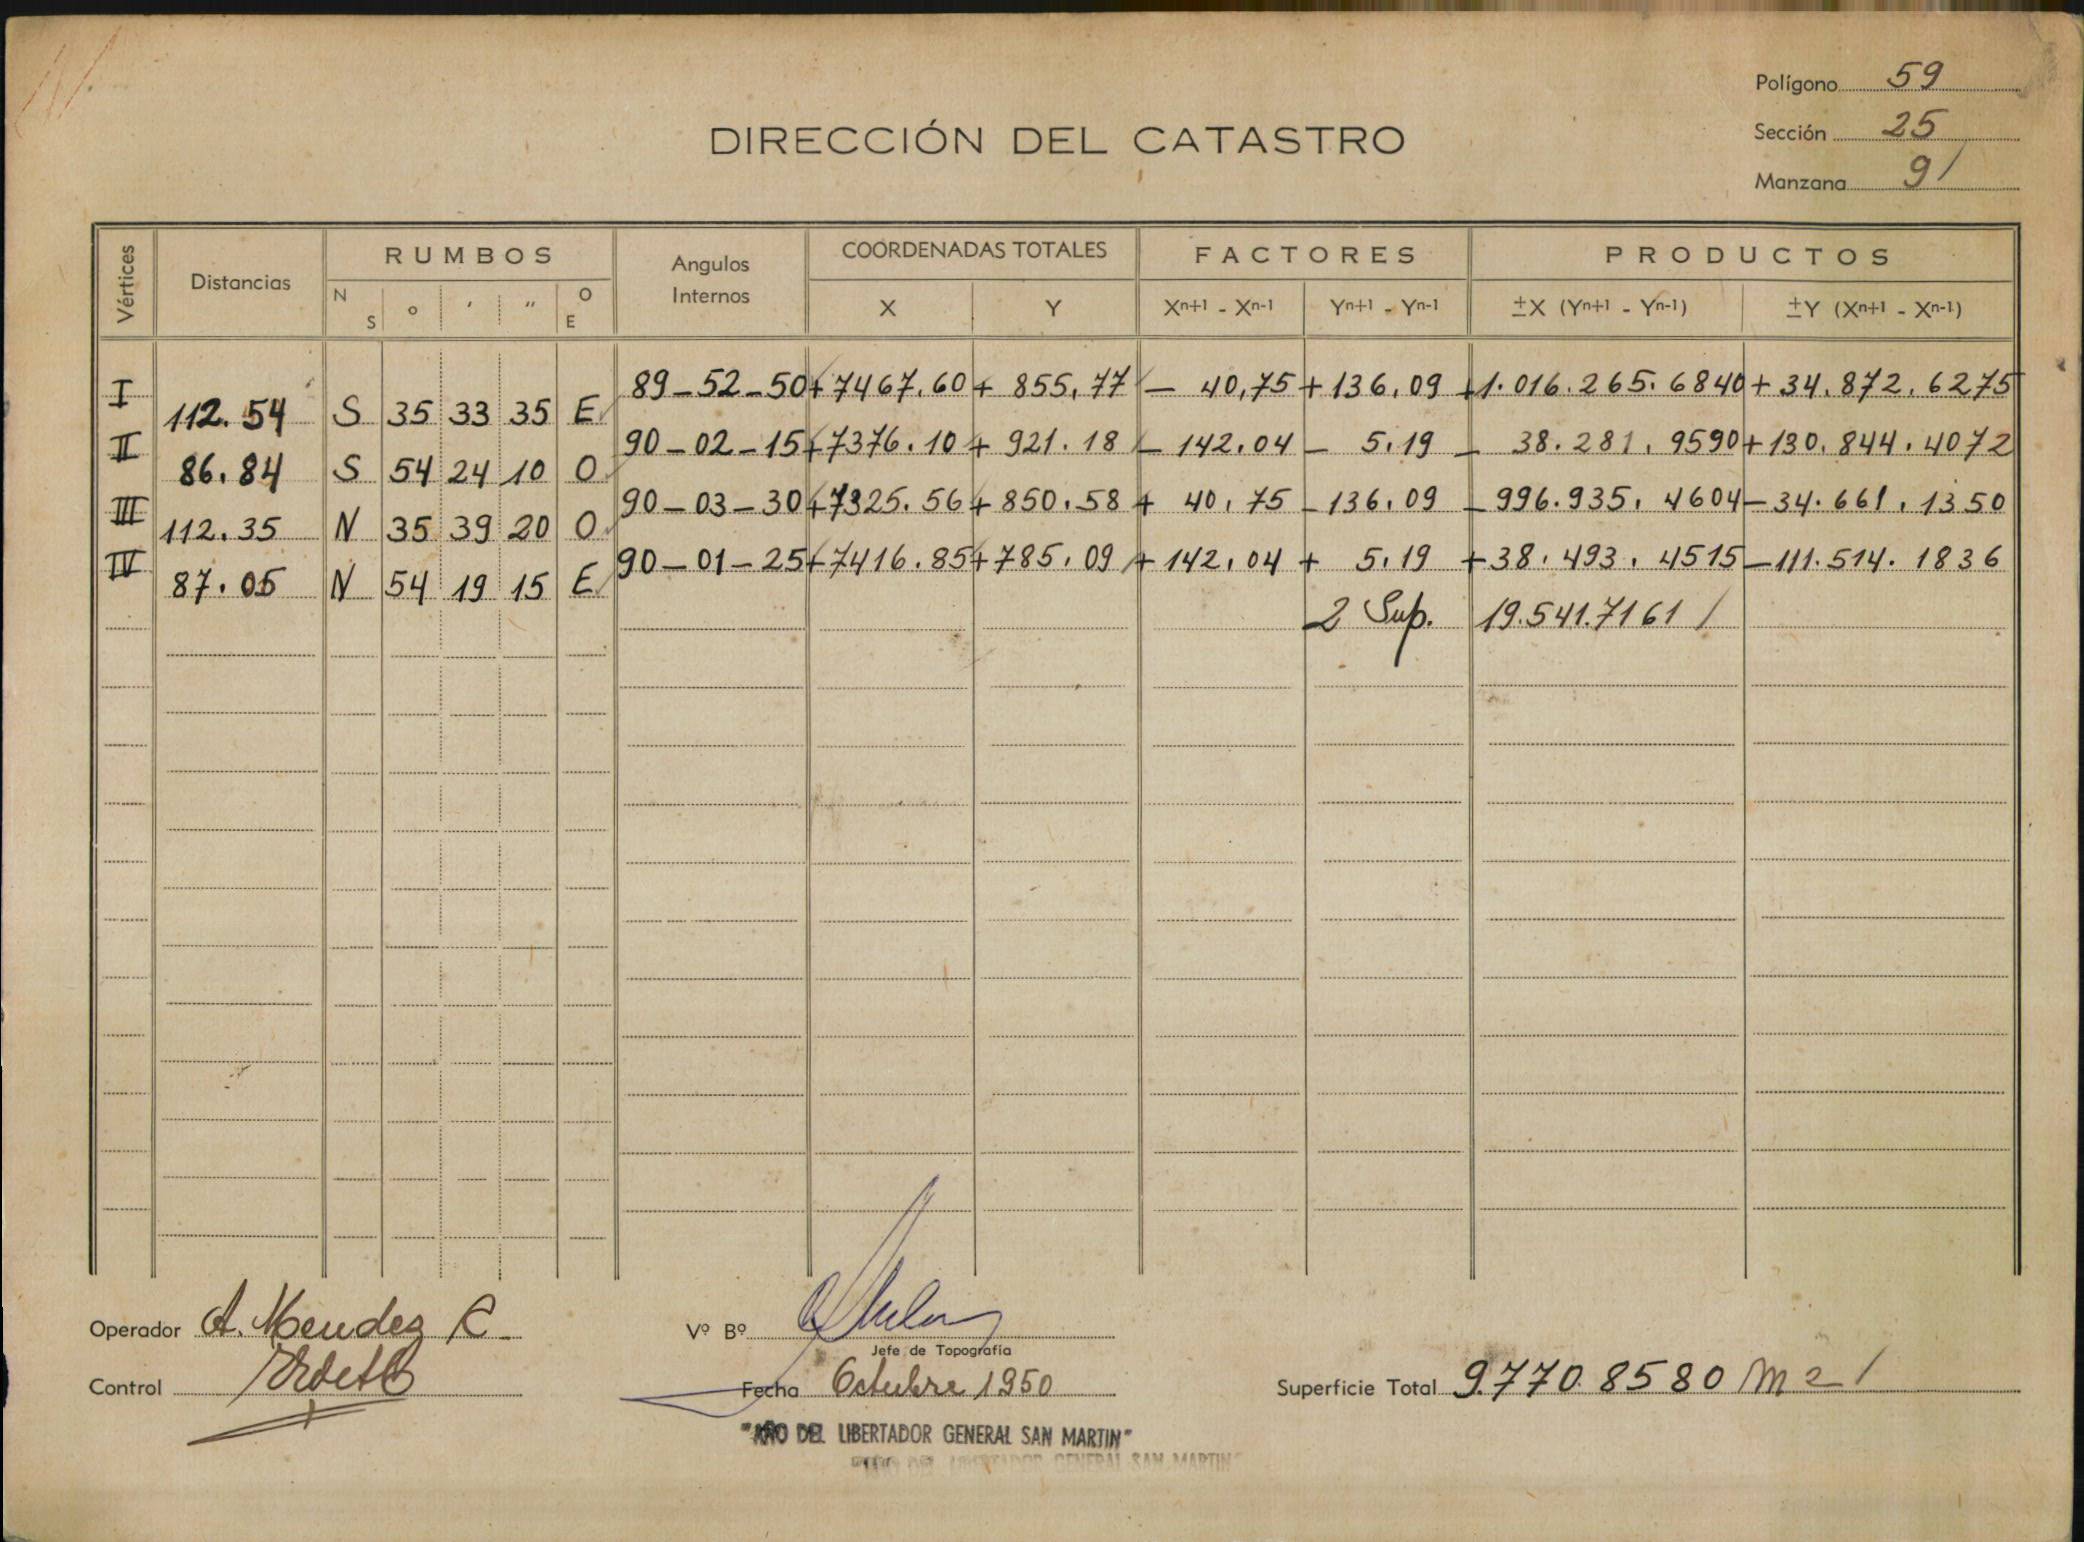 Polígono 59
DIRECCIÓN DEL CATASTRO
Sección 25
Manzana 91
Vértices Distancias RUMBOS Angulos Internos COORDENADAS TOTALES FACTORES PRODUCTOS
N S ° ' '' O E X Y Xn+1 - Xn-1 Yn+1 - Yn-1 ±X (Yn+1 - Yn-1) ±Y (Xn+1 - Xn-1)
I 89-52-50 +7467.60 + 855.77 - 40,75 +136.09 +1.016.265.6840 +34.872.6275
112.54 S 35 33 35 E
II 90-02-15 +7376.10 + 921.18 - 142.04 - 5.19 - 38.281.9590 +130.844.4072
86.84 S 54 24 10 O
III 90-03-30 +7325.56 +850.58 + 40.75 -136.09 -996.935.4604 -34.661.1350
112.35 N 35 39 20 O
IV 90-01-25 +7416.85 +785.09 +142.04 + 5.19 +38.493.4515 -111.514.1836
87.05 N 54 19 15 E
2 Sup. 19.541.7161 /
Operador A. Mendez R.
Vº Bº
Jefe de Topografía
Control
Fecha Octubre 1950
Superficie Total 9.770.8580 m2 /
"AÑO DEL LIBERTADOR GENERAL SAN MARTIN"
"AÑO DEL LIBERTADOR GENERAL SAN MARTIN"